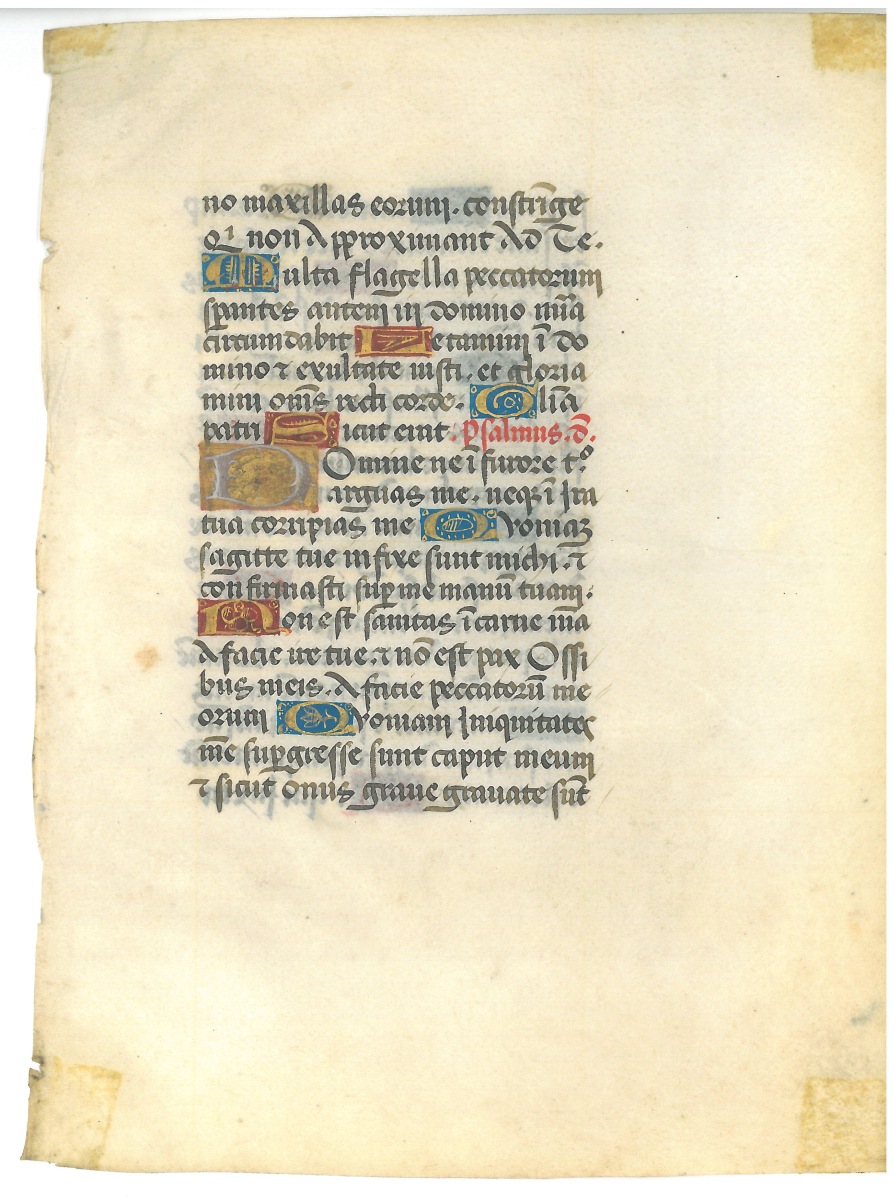 no maxillas eorum. constrīge
Qⁱ non Approximant Ad Te.
Multa flagella peccatorum
sꝑantes autem in domino mīa
circumdabit Letamini ī do
mino ⁊ exultate iusti. et gloria
mini om̄s recti corde. Gl̄ia
patri Sicut erat. Psalmus. d̄.
Domine ne ī furore t.º
arguas me. neqꝫ ī Ira
tua corripias me Quoniaꝫ
sagitte tue infixe sunt michi. ⁊
confirmasti suꝑ me manū tuam.
Non est sanitas ī carne m̄a
A facie ire tue. ⁊ nō est pax Ossi
bus meis. A facie peccatorū me
orum Quoniam Iniquitates
mē suꝑgresse sunt caput meum
⁊ sicut onus graue grauate sūt